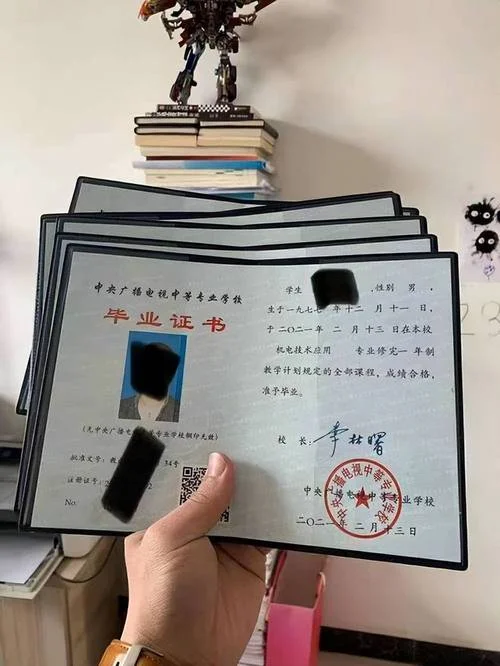 中央广播电视中等专业学校
毕业证书
(无中央广播电视中等专业学校钢印无效)
批准文号:教
34号
注册证号:
2
No.
学生
,性别 男,
生于一九七七年十二月十一日,
于二〇二一年 二月十三日在本校
机电技术应用 专业修完一年制
教学计划规定的全部课程,成绩合格,
准予毕业。
校 长:
中央广播电视中等专业学校
二〇二一年二月十三日
中央广播电视中等专业学校
23